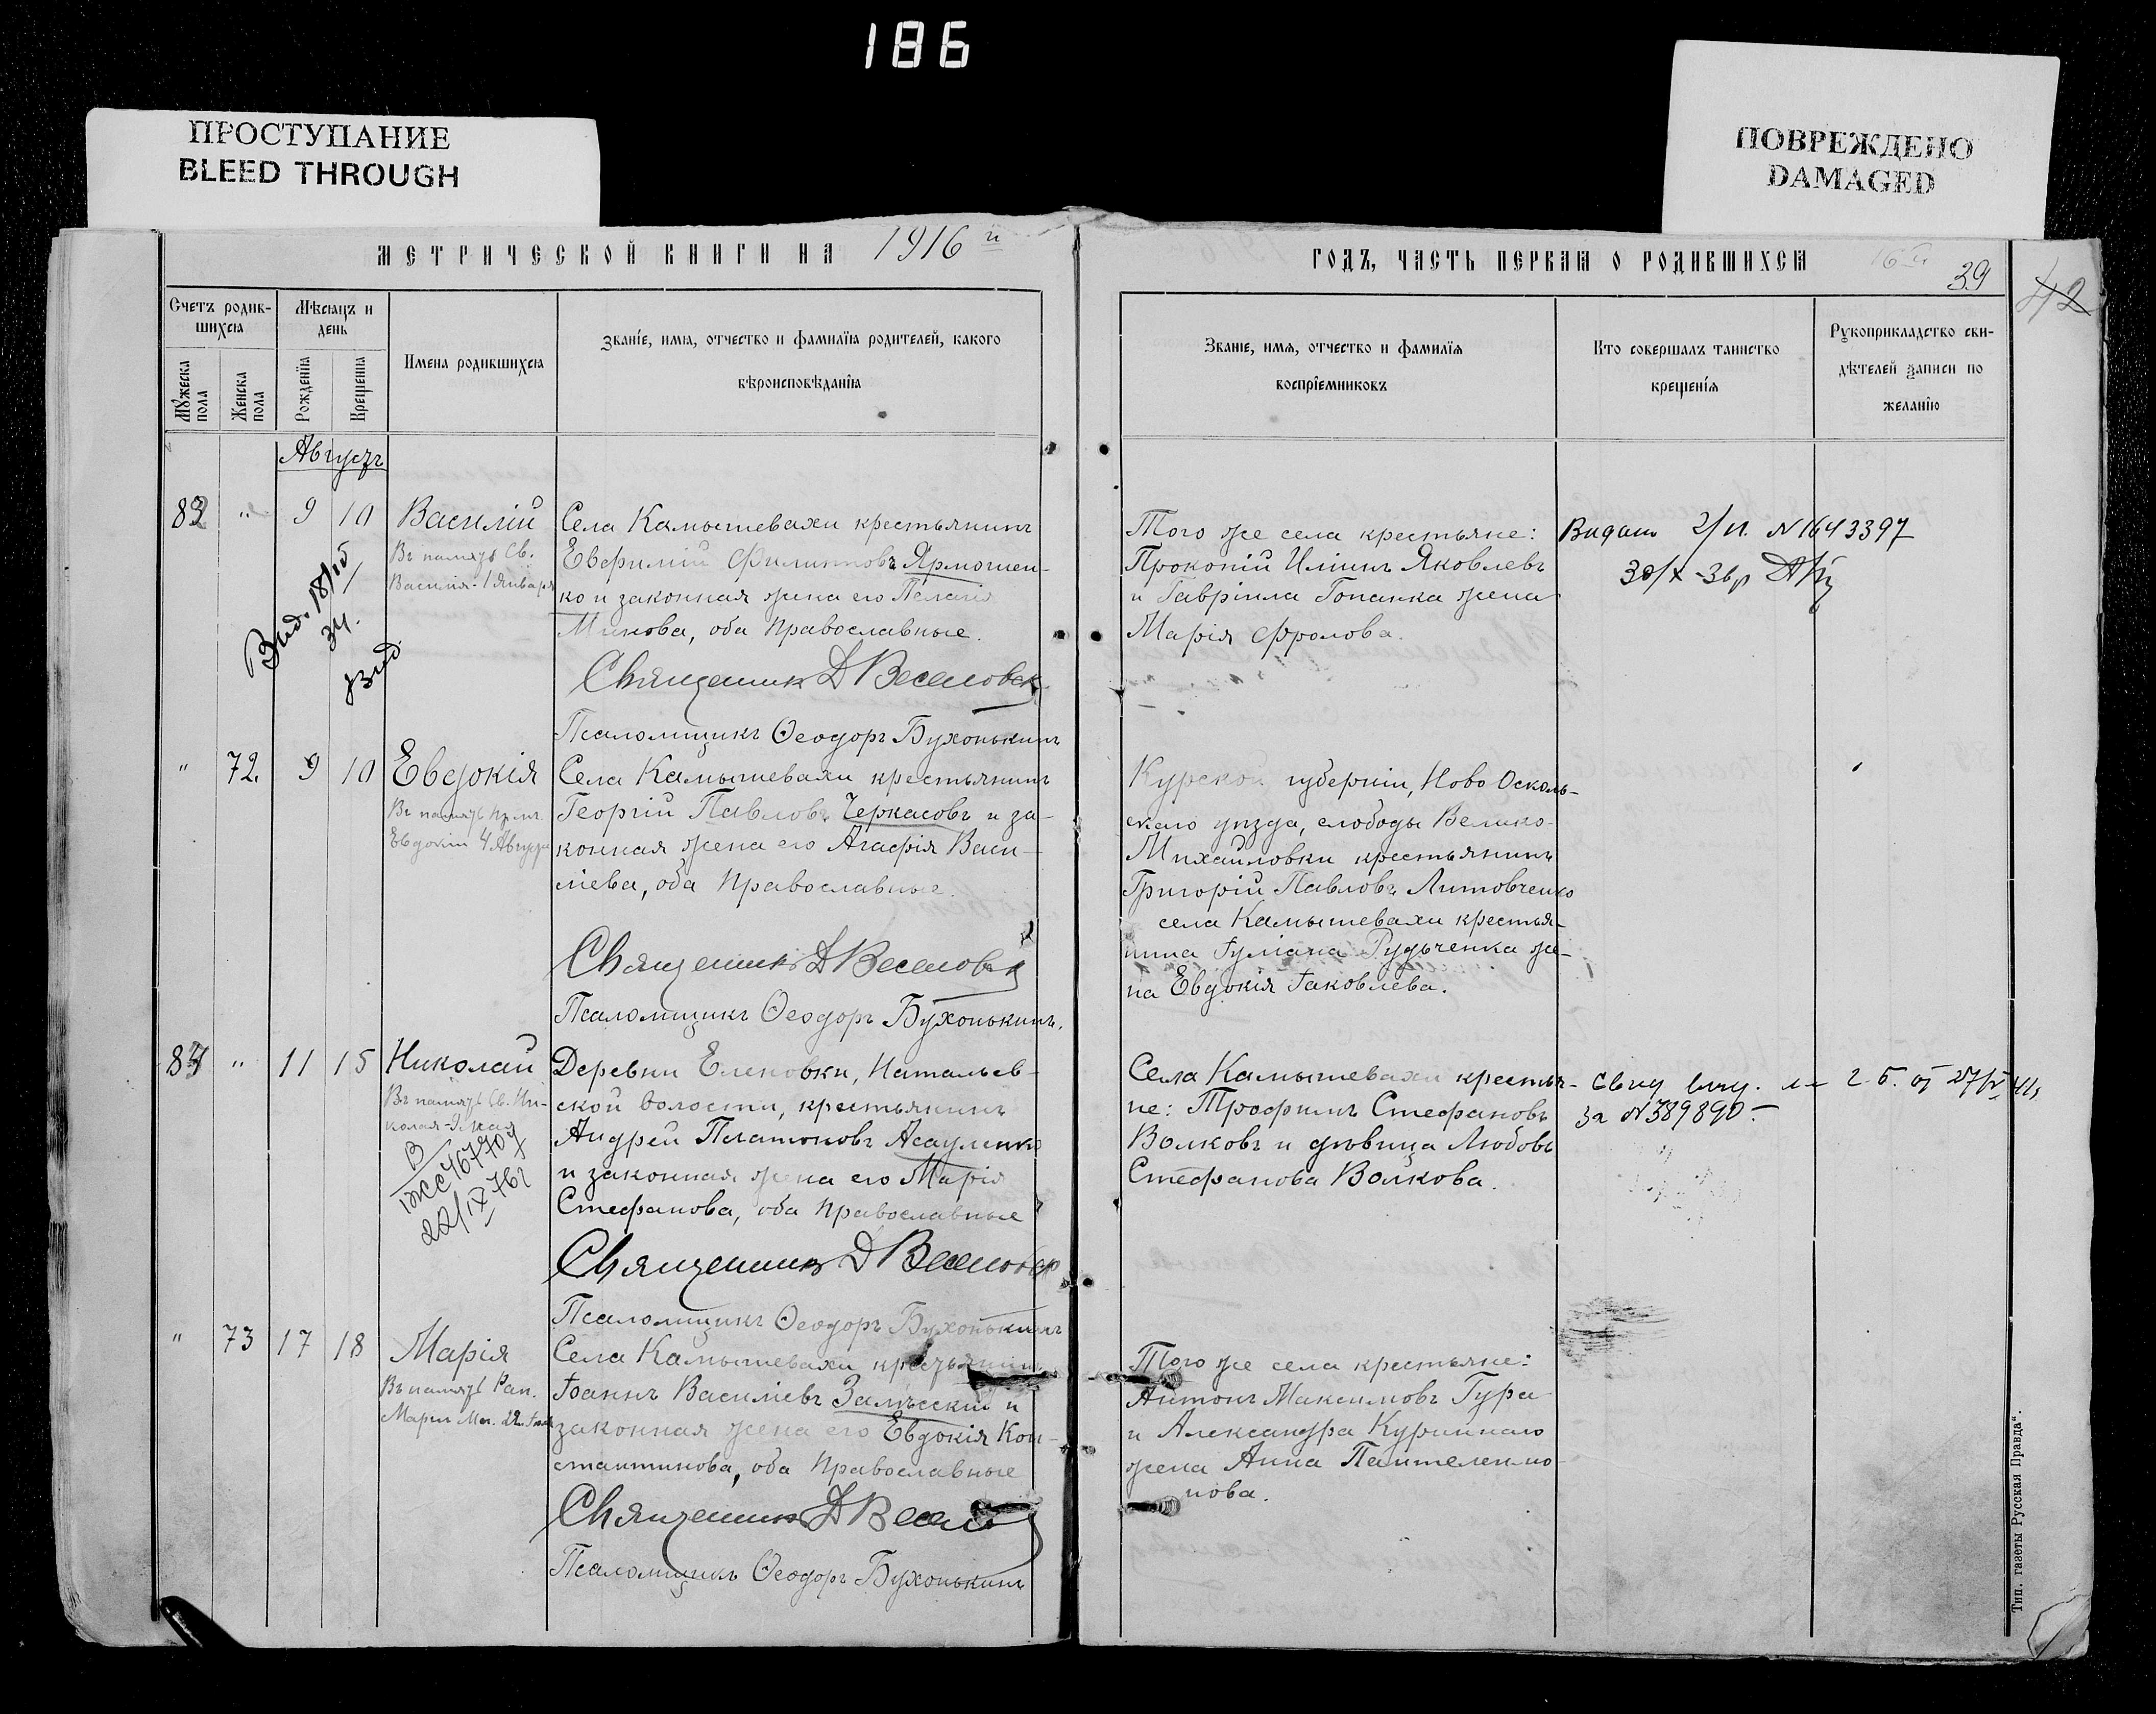 186
ПРОСТУПАНИЕ
BLEED THROUGH
ПОВРЕЖДЕНО
DAMAGED
МЕТРИЧЕСКОЙ КНИГИ НА 1916 й
ГОДЪ, ЧАСТЬ ПЕРВАЯ О РОДИВШИХСЯ
39
42
Счетъ родив-
шихся
Мѣсяцъ и
день
Мужеска
пола
Женска
пола
Рожденія
Крещенія
Имена родившихся
Званіе, имя, отчество и фамилія родителей, какого
вѣроисповѣданія
Званіе, имя, отчество и фамилія
воспріемниковъ
Кто совершалъ таинство
крещенія
Рукоприкладство сви-
дѣтелей записи по
желанію
Августъ
" 9 10 Василій
Въ память Св.
Василія - 1 Января
Вид. 34.
Вид
Села Камышевахи крестьянинъ
Евфимій Филиповъ Ярмошен-
ко и законная жена его Пелагія
оба Православные.
Священник Д Веселовск
Псаломщикъ Ѳеодоръ Бухонькинъ
Того же села крестьяне:
Прокопій Ильинъ Яковлевъ
и Гавріила Гопанка жена
Марія Фролова.
Видано 2/п. N 1643397
" 72. 9 10 Евдокія
Въ память
Евдокіи 4 Августа
Села Камышевахи крестьянинъ
Георгій Павловъ Черкасовъ и за-
конная жена его Агафія Васи-
ліева, оба Православные.
Священникъ Д Веселовск
Псаломщикъ Ѳеодоръ Бухонькинъ.
Курской губерніи, Ново Осколь-
скаго уѣзда, слободы Велико-
Михайловки крестьянинъ
Григорій Павловъ Литовченко
села Камышевахи крестья-
нина Іуліана Рудьченка же-
на Евдокія Іаковлева.
" 11 15 Николай
Въ память Св. Ни-
колая - 9 мая
22/IX 76г
Деревни Еленовки, Натальев-
ской волости, крестьянинъ
Андрей Платоновъ Асауленко
и законная жена его Марія
Стефанова, оба Православные
Священникъ Д Веселовск
Псаломщикъ Ѳеодоръ Бухонькинъ
Села Камышевахи крестья-
не: Трофимъ Стефановъ
Волковъ и дѣвица Любовь
Стефанова Волкова.
за N 389890 -
" 73 17 18 Марія
Въ память Рав.
Маріи Маг. 22
Села Камышевахи крестьянинъ
Іоаннъ Василіевъ Залѣсскій и
законная жена его Евдокія Кон-
стантинова, оба Православные
Священникъ Д Весело
Псаломщикъ Ѳеодоръ Бухонькинъ
Того же села крестьяне:
Антонъ Максимовъ Гура
и Александра Куриннаго
жена Анна Пантелеимо-
нова.
Тип. газеты Русская Правда“.